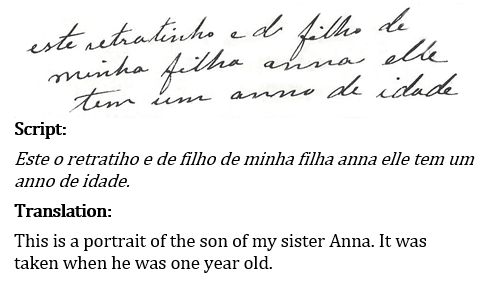 este retratinho e d filho de
minha filha anna elle
tem um anno de idade
Script:
Este o retratiho e de filho de minha filha anna elle tem um
anno de idade.
Translation:
This is a portrait of the son of my sister Anna. It was
taken when he was one year old.